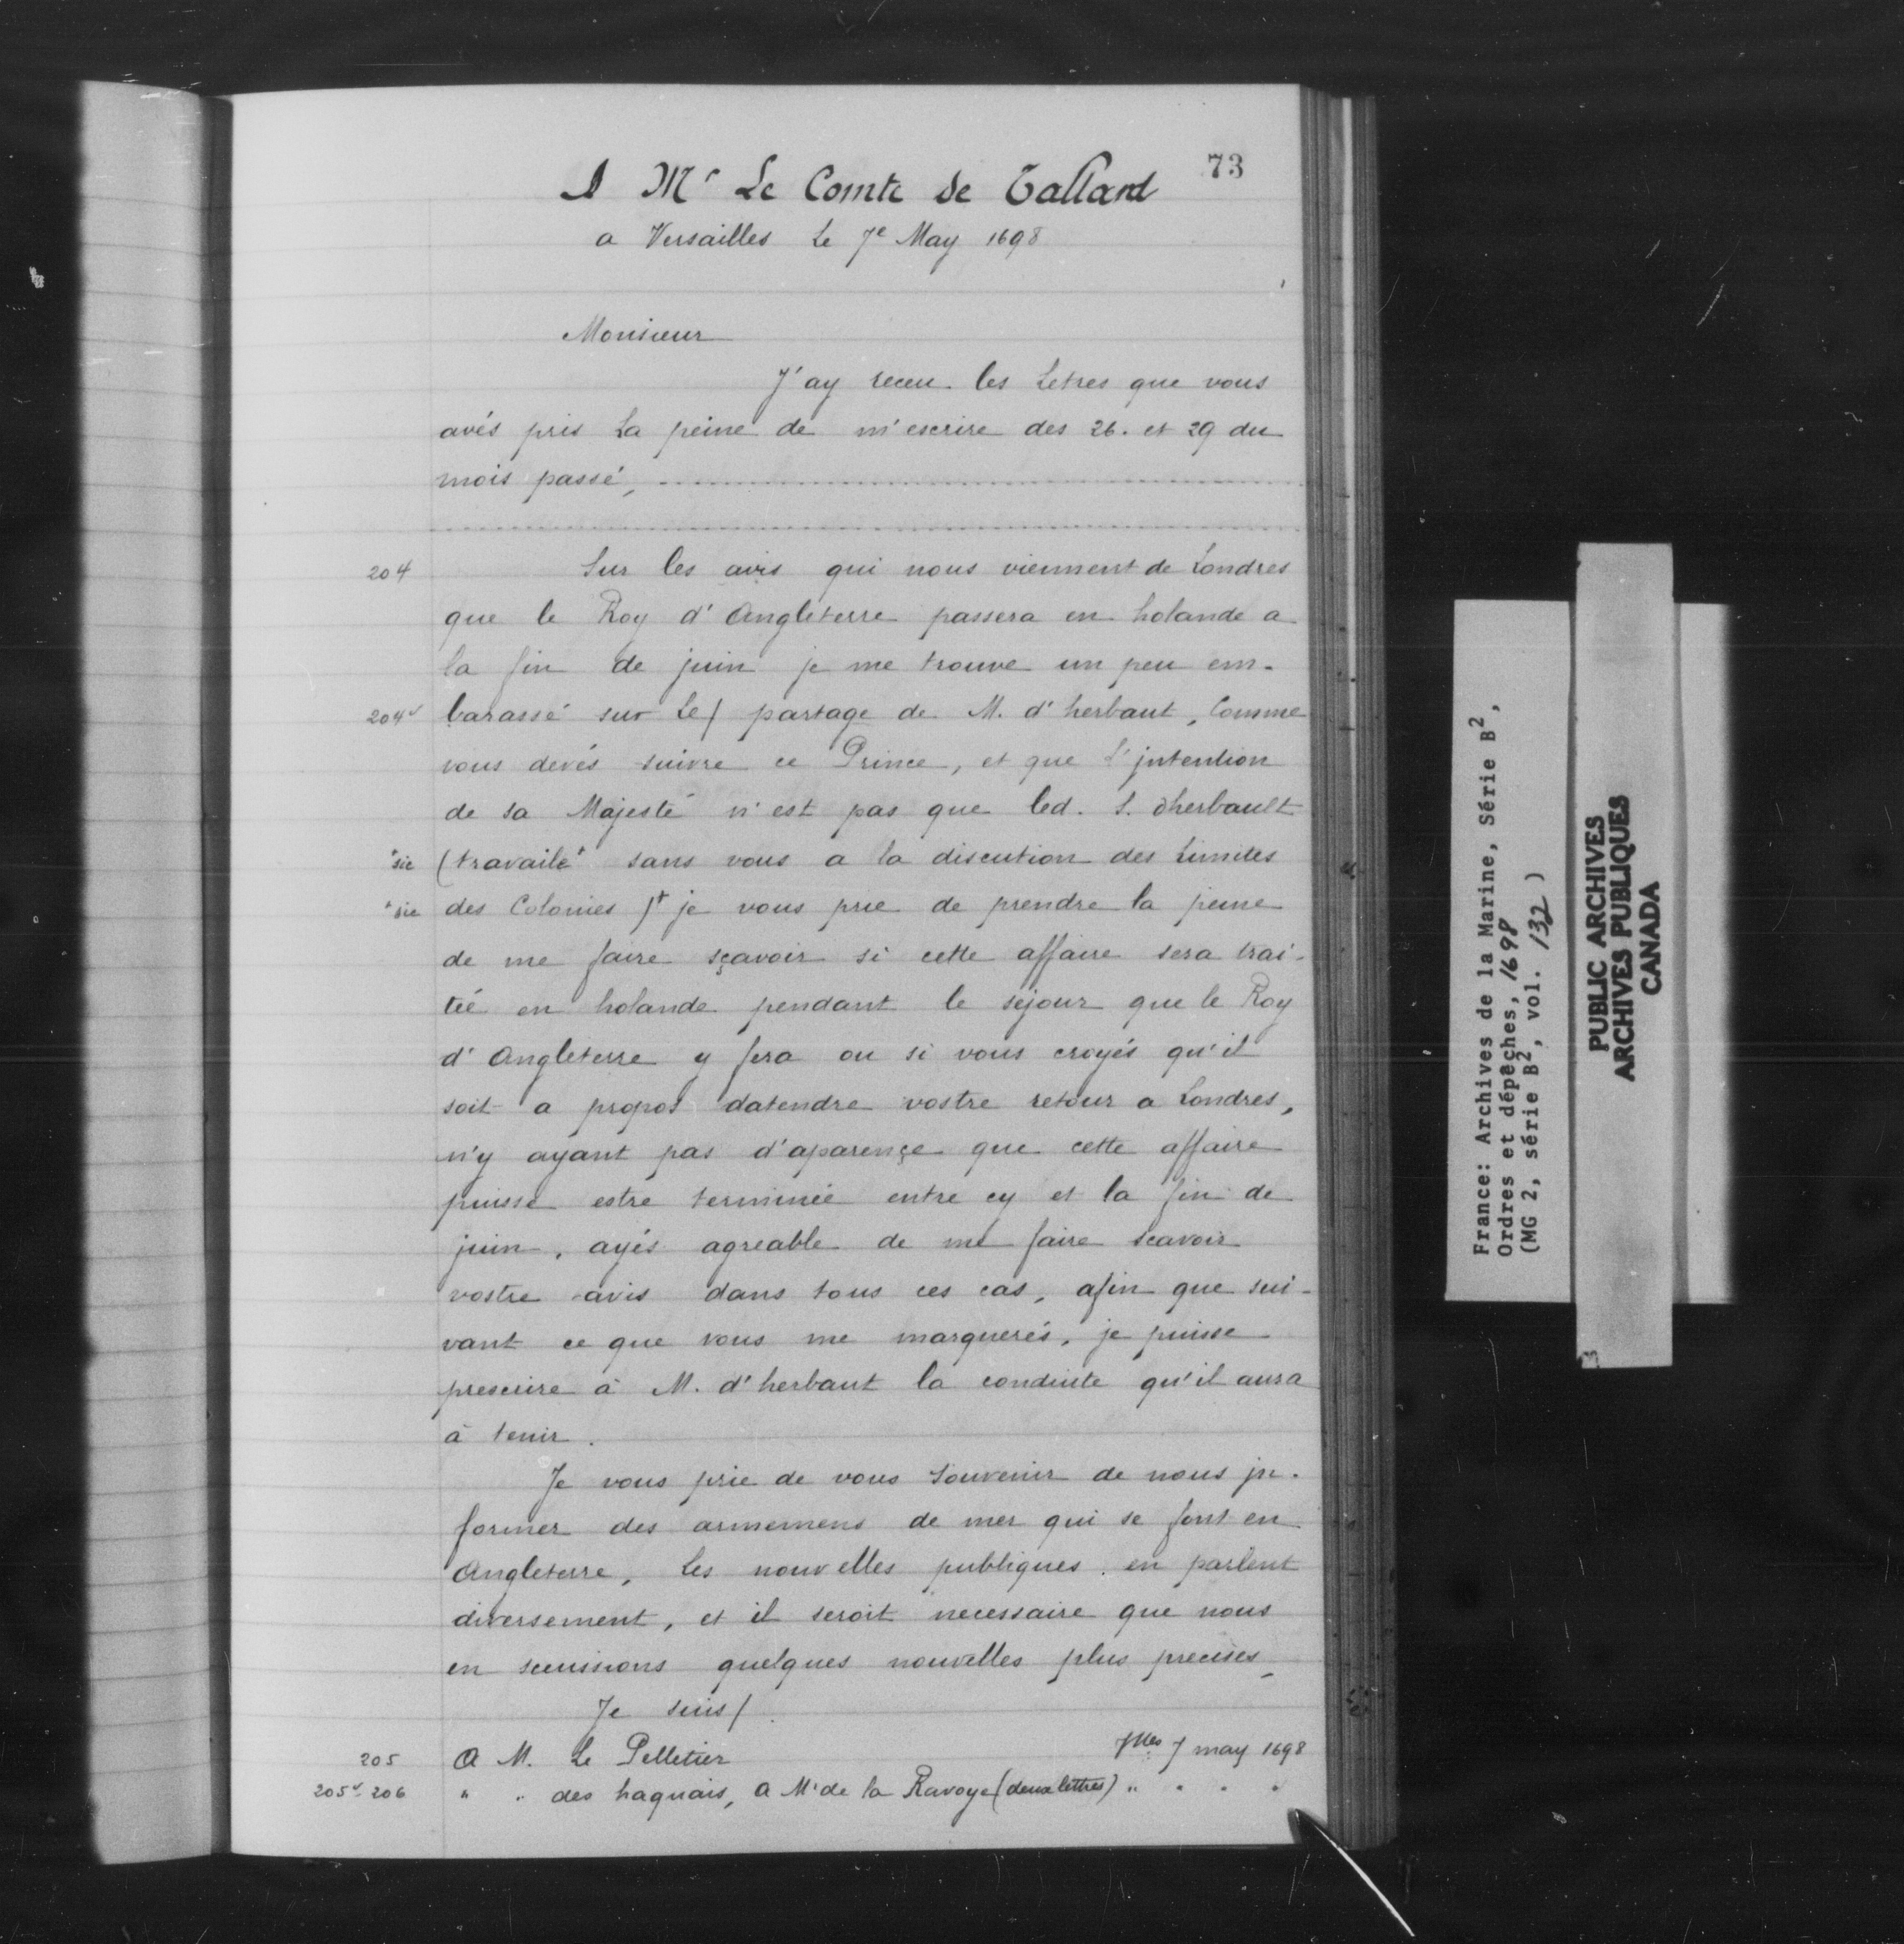 73
A Mr Le Comte de Tallard
a Versailles Le 7e May 1698
Monsieur
J'ay receu les Letres que vous
avés pris La peine de m'escrire des 26. et 29 du
mois passé,
204 Sur les avis qui nous viennent de Londres
que le Roy d'Angleterre passera en holande a
la fin de juin je me trouve un peu em-
204v barassé sur Le/ partage de M. d'herbaut, Comme
vous devés suivre ce Prince, et que L'jntention
de sa Majesté n'est pas que led. S. dherbault
+sic (travaile+ sans vous a la discution des Limites
+sic des Colonies )+ je vous prie de prendre la peine
de me faire sçavoir si cette affaire sera trai-
tée en holande pendant le sejour que le Roy
d'Angleterre y fera ou si vous croyés qu'il
soit a propos datendre vostre retour a Londres,
n'y ayant pas d'aparençe que cette affaire
puisse estre terminée entre cy et la fin de
juin, ayés agreable de me faire scavoir
vostre avis dans tous ces cas, afin que sui-
vant ce que vous me marquerés, je puisse
prescrire à M. d'herbaut la conduite qu'il aura
à tenir.
Je vous prie de vous Souvenir de nous jn-
former des armemens de mer qui se font en
Angleterre, Les nouvelles publiques en parlent
diversement, et il seroit necessaire que nous
en sceussions quelques nouvelles plus precises,
Je suis/
205 A M. Le Pelletier Vlles 7 may 1698
205v-206 " " des haguais, A Mr de la Ravoye (deux lettres) " " " "
France: Archives de la Marine, Série B2,
Ordres et dépêches, 1698
(MG 2, série B2, vol. 132)
PUBLIC ARCHIVES
ARCHIVES PUBLIQUES
CANADA